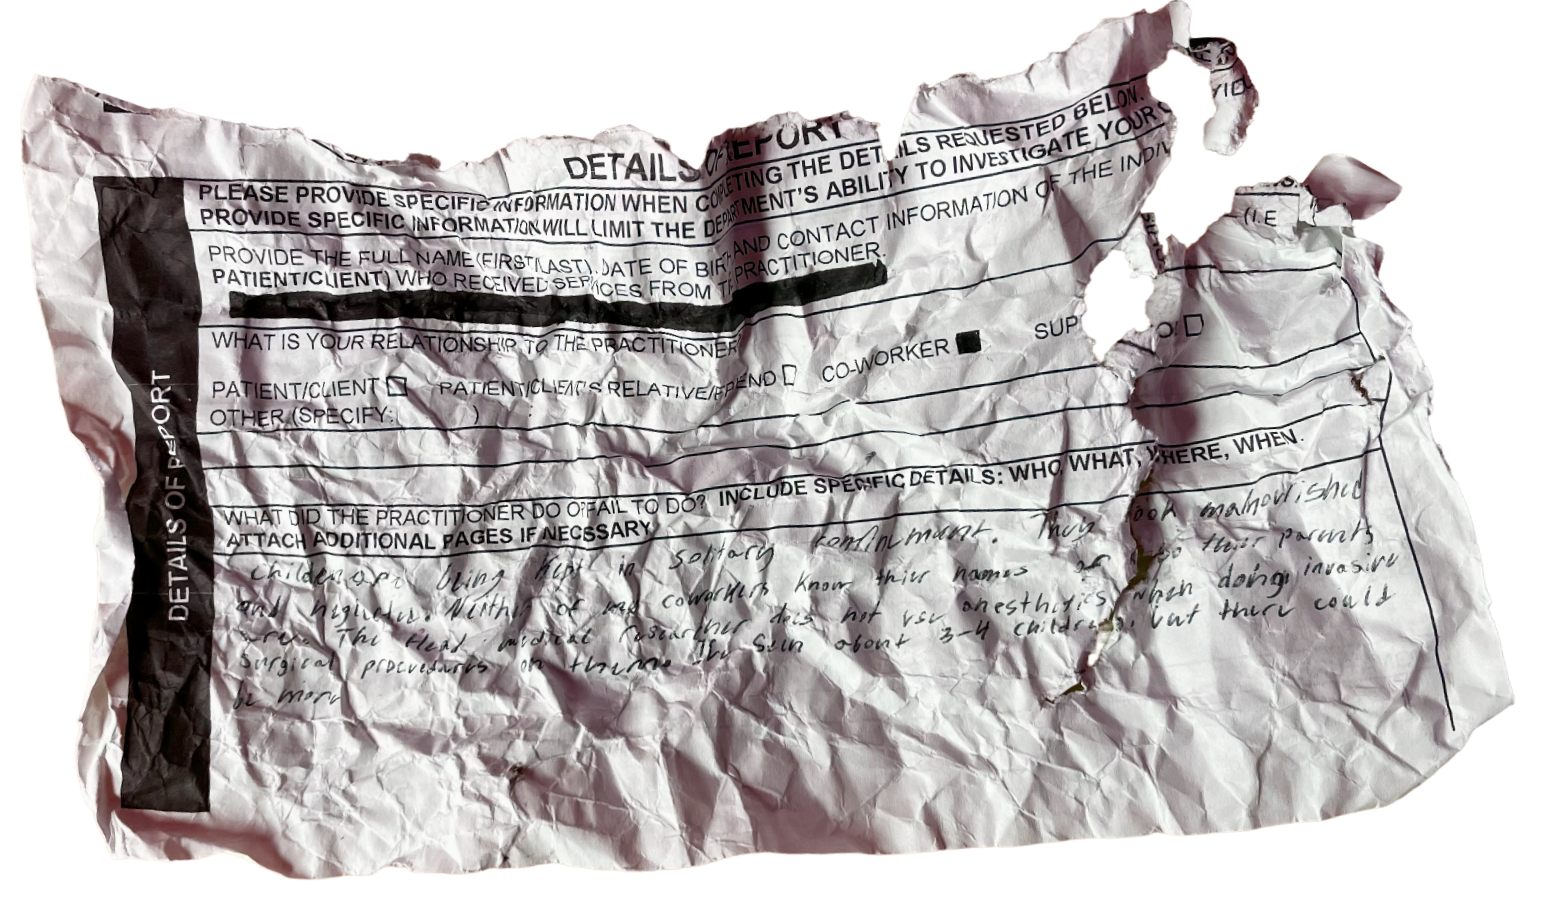 DETAILS OF REPORT
PLEASE PROVIDE SPECIFIC INFORMATION WHEN COMPLETING THE DETAILS REQUESTED BELOW.
PROVIDE SPECIFIC INFORMATION WILL LIMIT THE DEPARTMENT'S ABILITY TO INVESTIGATE YOUR
PROVIDE THE FULL NAME (FIRST, LAST), DATE OF BIRTH AND CONTACT INFORMATION OF THE INDIV (I.E
PATIENT/CLIENT) WHO RECEIVED SERVICES FROM THE PRACTITIONER.
WHAT IS YOUR RELATIONSHIP TO THE PRACTITIONER
PATIENT/CLIENT PATIENT/CLIENT'S RELATIVE/FRIEND CO-WORKER SUP
OTHER (SPECIFY: )
WHAT DID THE PRACTITIONER DO OR FAIL TO DO? INCLUDE SPECIFIC DETAILS: WHO WHAT, WHERE, WHEN.
ATTACH ADDITIONAL PAGES IF NECESSARY
Children are being kept in solitary confinment. They look malnourished
and neglected. Neither of my coworkers know thier names or who their parents
are. The Head medical researcher does not use anesthetics when doing invasive
surgical procedures on them. I've seen about 3-4 children, but there could
be more
DETAILS OF REPORT